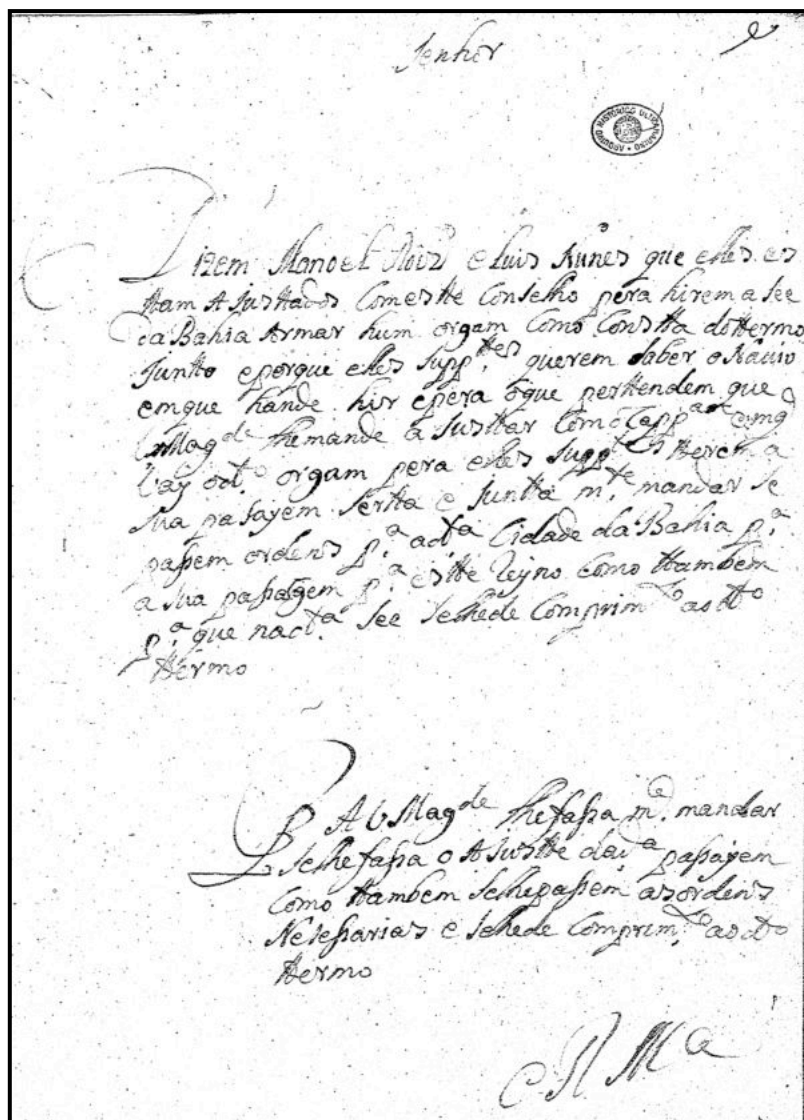 Senhor
ARQUIVO HISTORICO ULTRAMARINO
Dizem Manoel Roiz e Luis Nunes que elles es
ttam A Justtados Comestte Conselho pera hirem a See
da Bahia Armar hum orgam Como Constta do ttermo
Juntto eporque elles Supp.ttes querem Saber o Navio
emque hande hir epera o que perttendem que
V Mag.de lhe mande a Justtar Com o Capp.am emq
Vay o d.to orgam pera elles Supp.tes tterem a
Sua pasajem Sertta e Juntta m.te mandar Se
paßem ordens p.a a d.ta Cidade da Bahia p.a
a Sua paßagem p.a estte Reyno como ttambem
p.a que na d.ta See Selhede Comprim.to ao d.to
ttermo
P A V Mag.de lhe faßa m.e mandar
Selhe faßa o AJustte da d.ta paßajem
Como ttambem Selhe paßem as ordens
Neseßarias e Selhede Comprim.to ao d.to
ttermo
E R M.ce